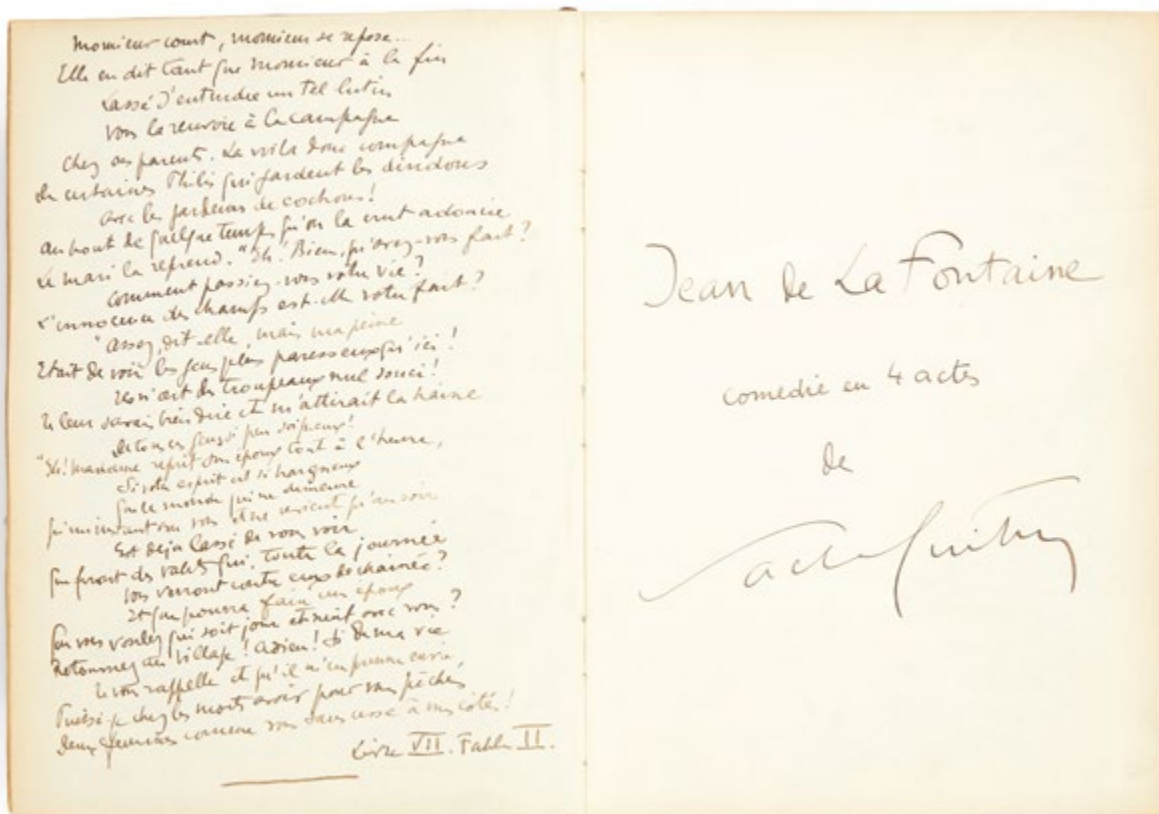 Monsieur court, monsieur se repose...
Elle en dit tant que monsieur à la fin
Lassé d'entendre un tel lutin
Vous la renvoie à la campagne
Chez ses parents. La voilà donc compagne
De certaines Philis qui gardent les dindons
Avec les gardeurs de cochons!
Au bout de quelque temps qu'on la crut adoucie
Le mari la reprend. "Eh! Bien, qu'avez-vous fait?
Comment passiez-vous votre vie?
L'innocence des champs est-elle votre fait?
"Assez, dit-elle, mais ma peine
Etait de voir les gens plus paresseux qu'ici!
des troupeaux nul souci!
Je leur savais bien dire et m'attirait la haine
De tous ces gens si peu soigneux!
"Eh! madame reprit son époux tout à l'heure,
Si votre esprit est si hargneux
Que le monde qui ne demeure
Qu'un instant avec vous et ne revient qu'au soir
Est déjà lassé de vous voir
Que feront des valets qui, toute la journée
Vous verront contre eux déchainée?
Et que pourra faire un époux
Que vous voulez qui soit jour et nuit avec vous?
Retournez au village! Adieu! Si de ma vie
Je vous rappelle et qu'il m'en prenne envie,
Puissé-je chez les morts avoir pour mes péchés
Deux femmes comme vous sans cesse à mes côtés!
Livre VII. Fable II.
Jean de La Fontaine
comedie en 4 actes
de
Sacha Guitry